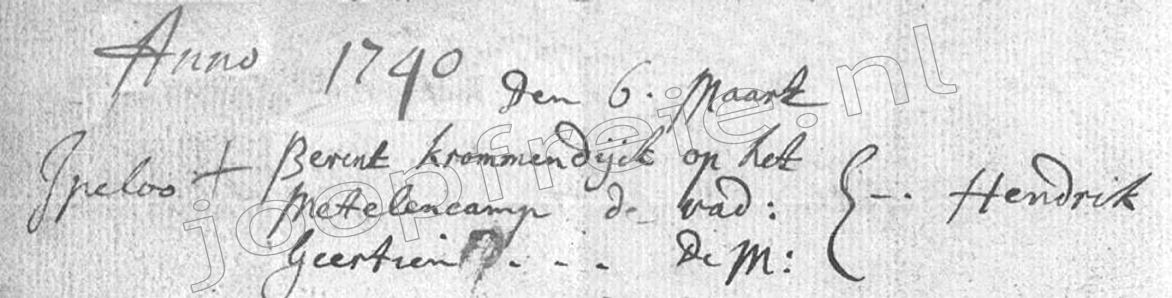 Anno 1740
Den 6. Maart
Ypeloo + Berent krommendijck op het
Metelencamp de vad: {--. Hendrik
Geertien . . . De M:
joopfreie.nl